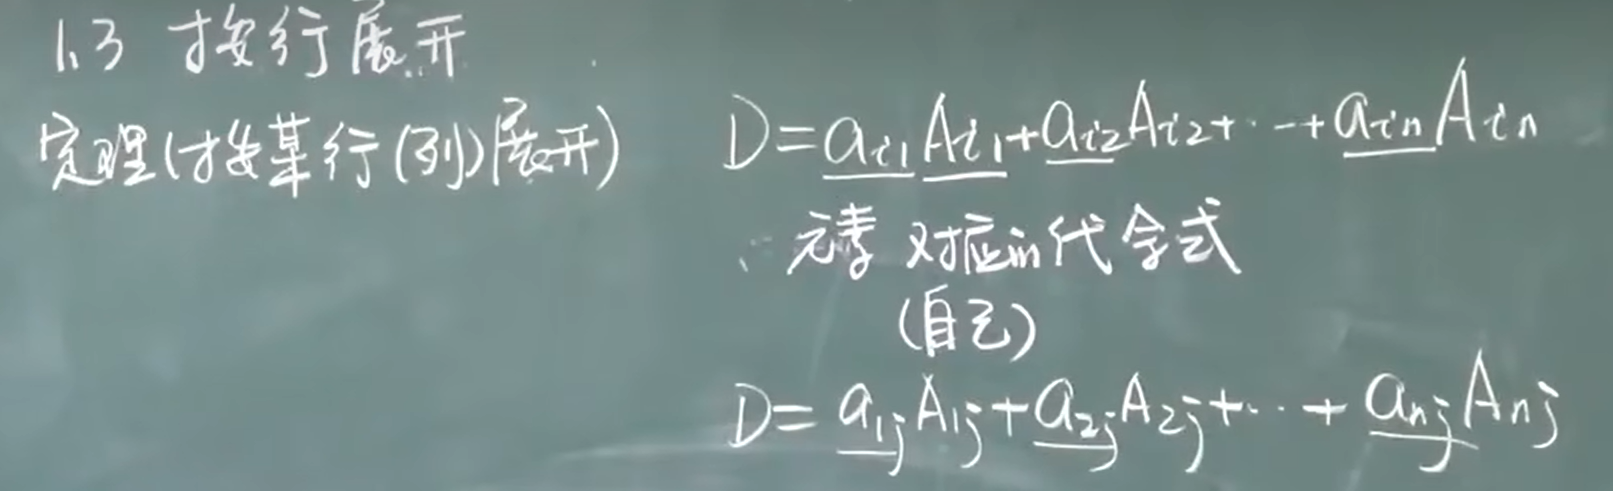 1.3 按行展开
定理(按某行(列)展开)
D=aᵢ₁Aᵢ₁+aᵢ₂Aᵢ₂+⋯+aᵢₙAᵢₙ
元素 对应的代余式
(自己)
D=a₁ⱼA₁ⱼ+a₂ⱼA₂ⱼ+⋯+aₙⱼAₙⱼ